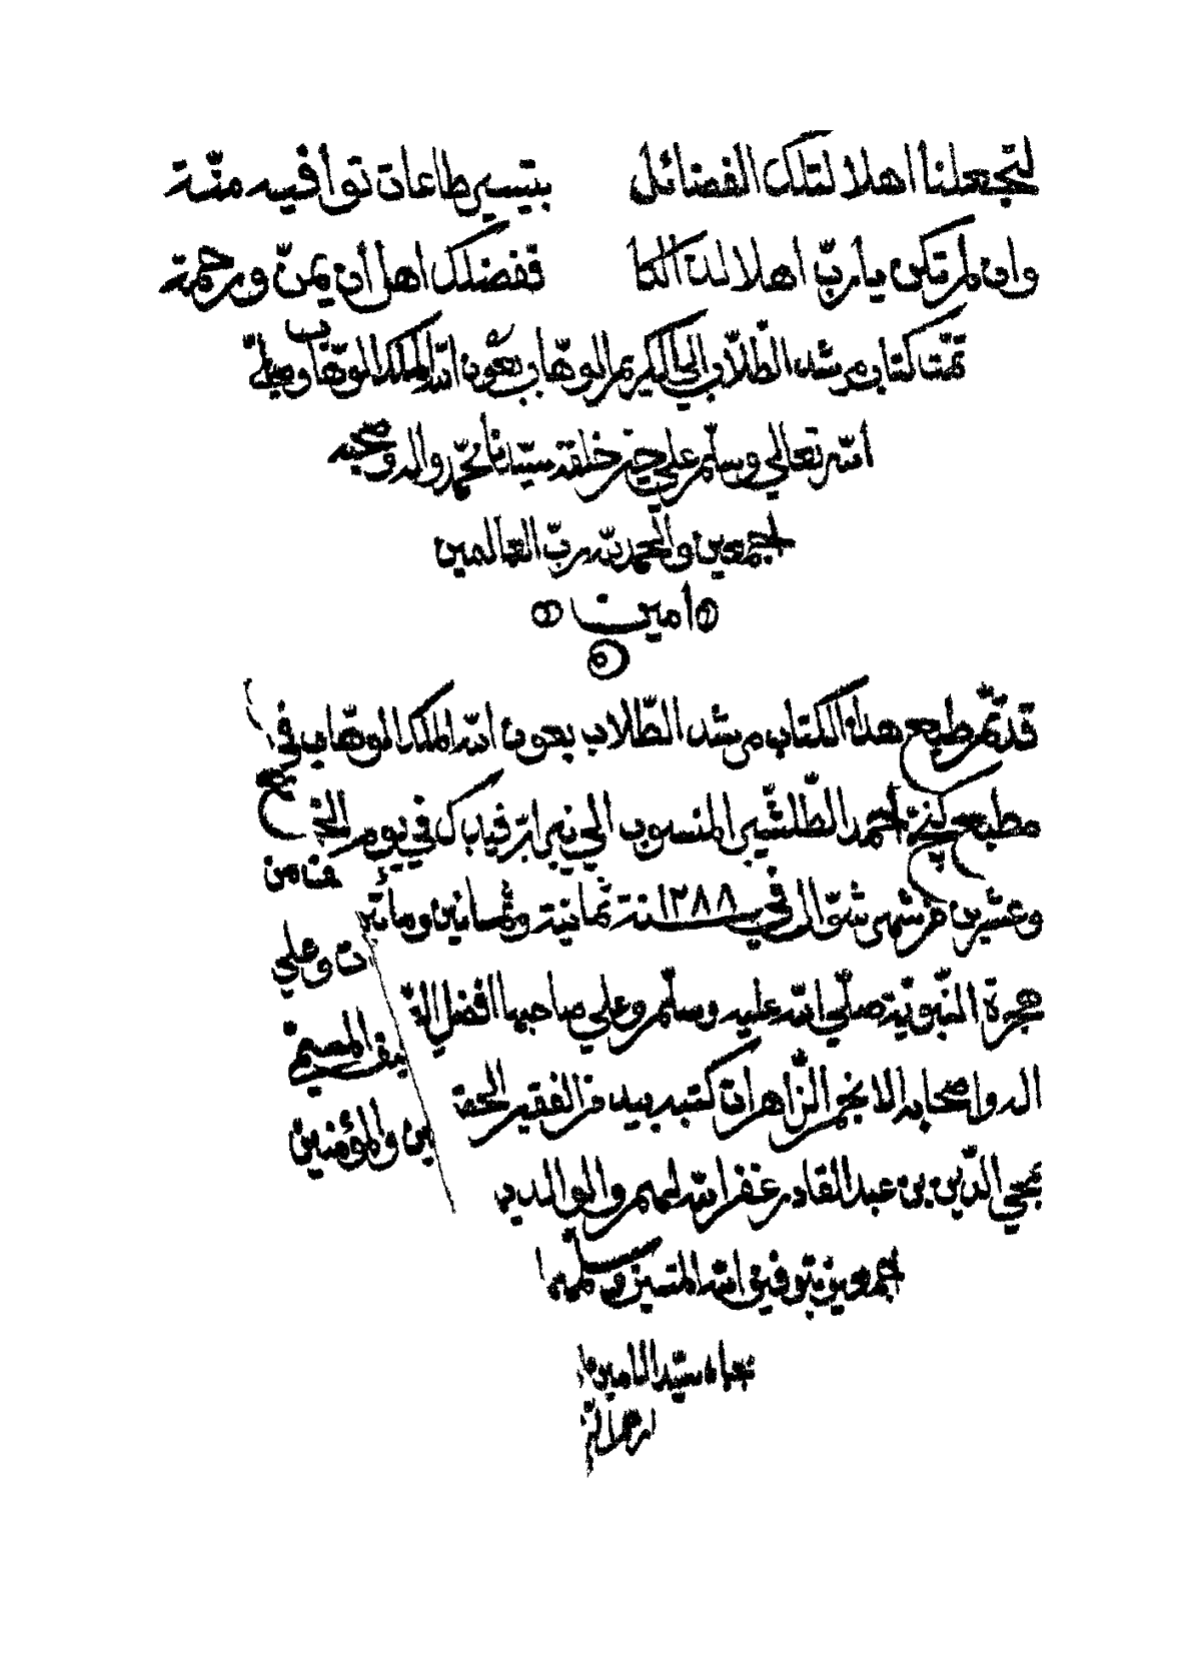 لتجعلنا اهلا لتلك الفضائل بتيسير طاعات توافيه منّة
وان لم تكن يا ربّ اهلا لذالكا ففضلك اهل أن يمنّ ورحمة
تمّت كتاب مرشد الطّلّاب الى الكريم الوهّاب بعون الله الملك الوهّاب وصلّى
الله تعالى وسلّم على خير خلقه سيّدنا محمّد واله وصحبه
اجمعين والحمد لله ربّ العالمين
امين
قد تمّ طبع هذا الكتاب مرشد الطّلاب بعون الله الملك الوهّاب في
مطبع كنج أحمد الطلشيري المنسوب الى في يوم الخميس
وعشرين من شهر شوّال في سنة ١٢٨٨ ثمانية وثمانين ومأتين
هجرة النّبويّة صلّى الله عليه وسلّم وعلى صاحبها افضل وعلى
اله واصحابه الانجم الزّاهرات كتبه بيده من الفقير المسمى
بمحي الدّين بن عبد القادر غفر الله لهم والوالديه والمؤمنين
اجمعين بتوفيق الله المتين
بجاه سيّد